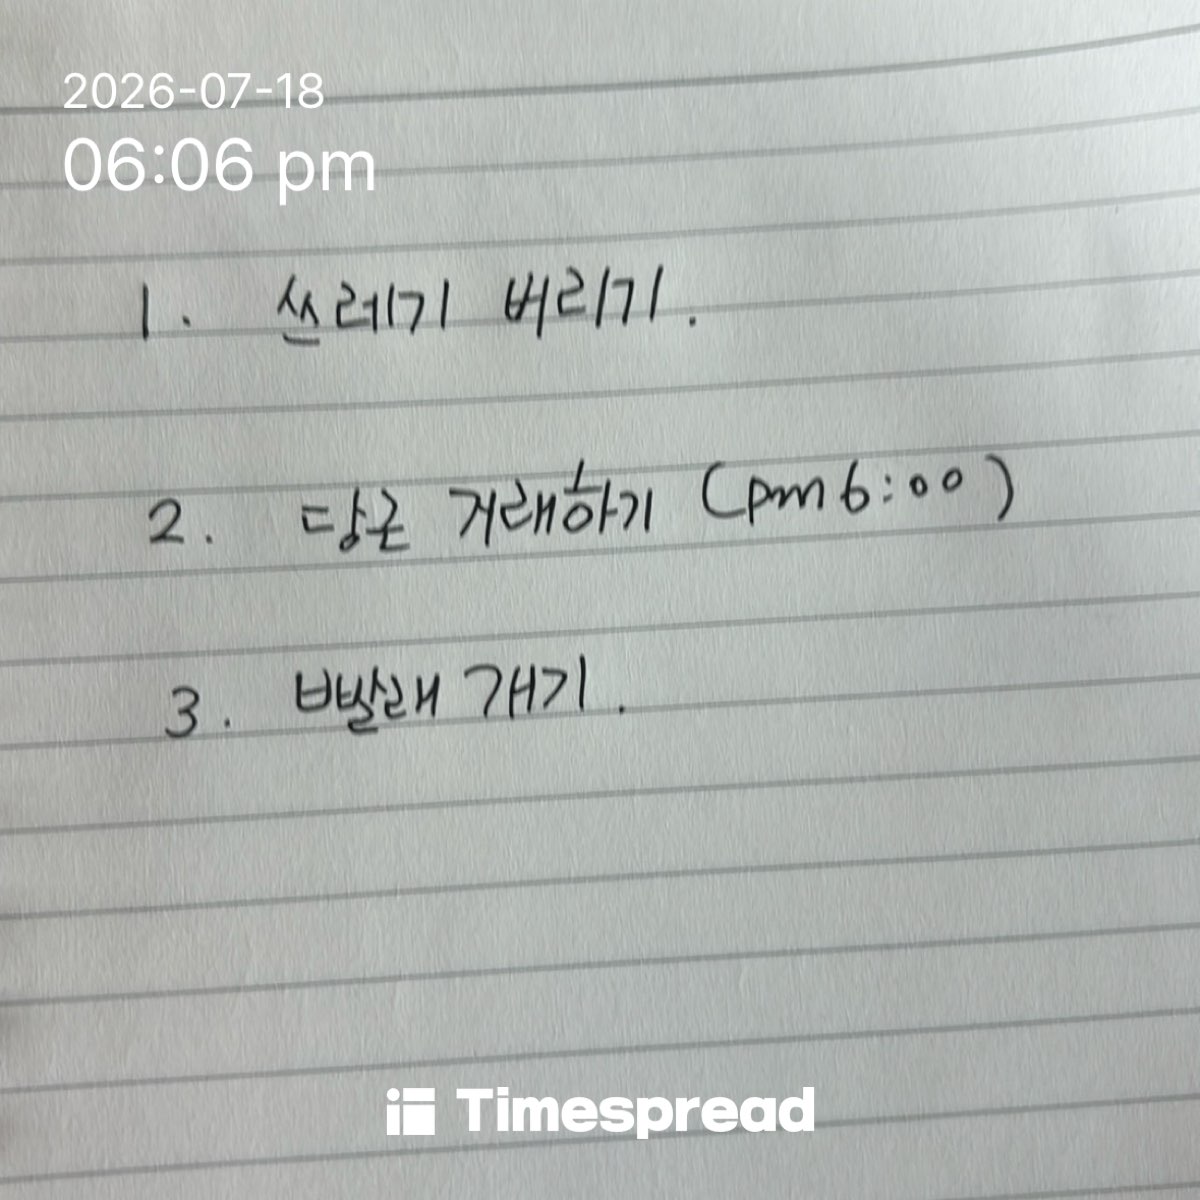 2026-07-18
06:06 pm
1. 쓰레기 버리기.
2. 당근 거래하기 (pm 6:00)
3. 빨래 개기.
Timespread